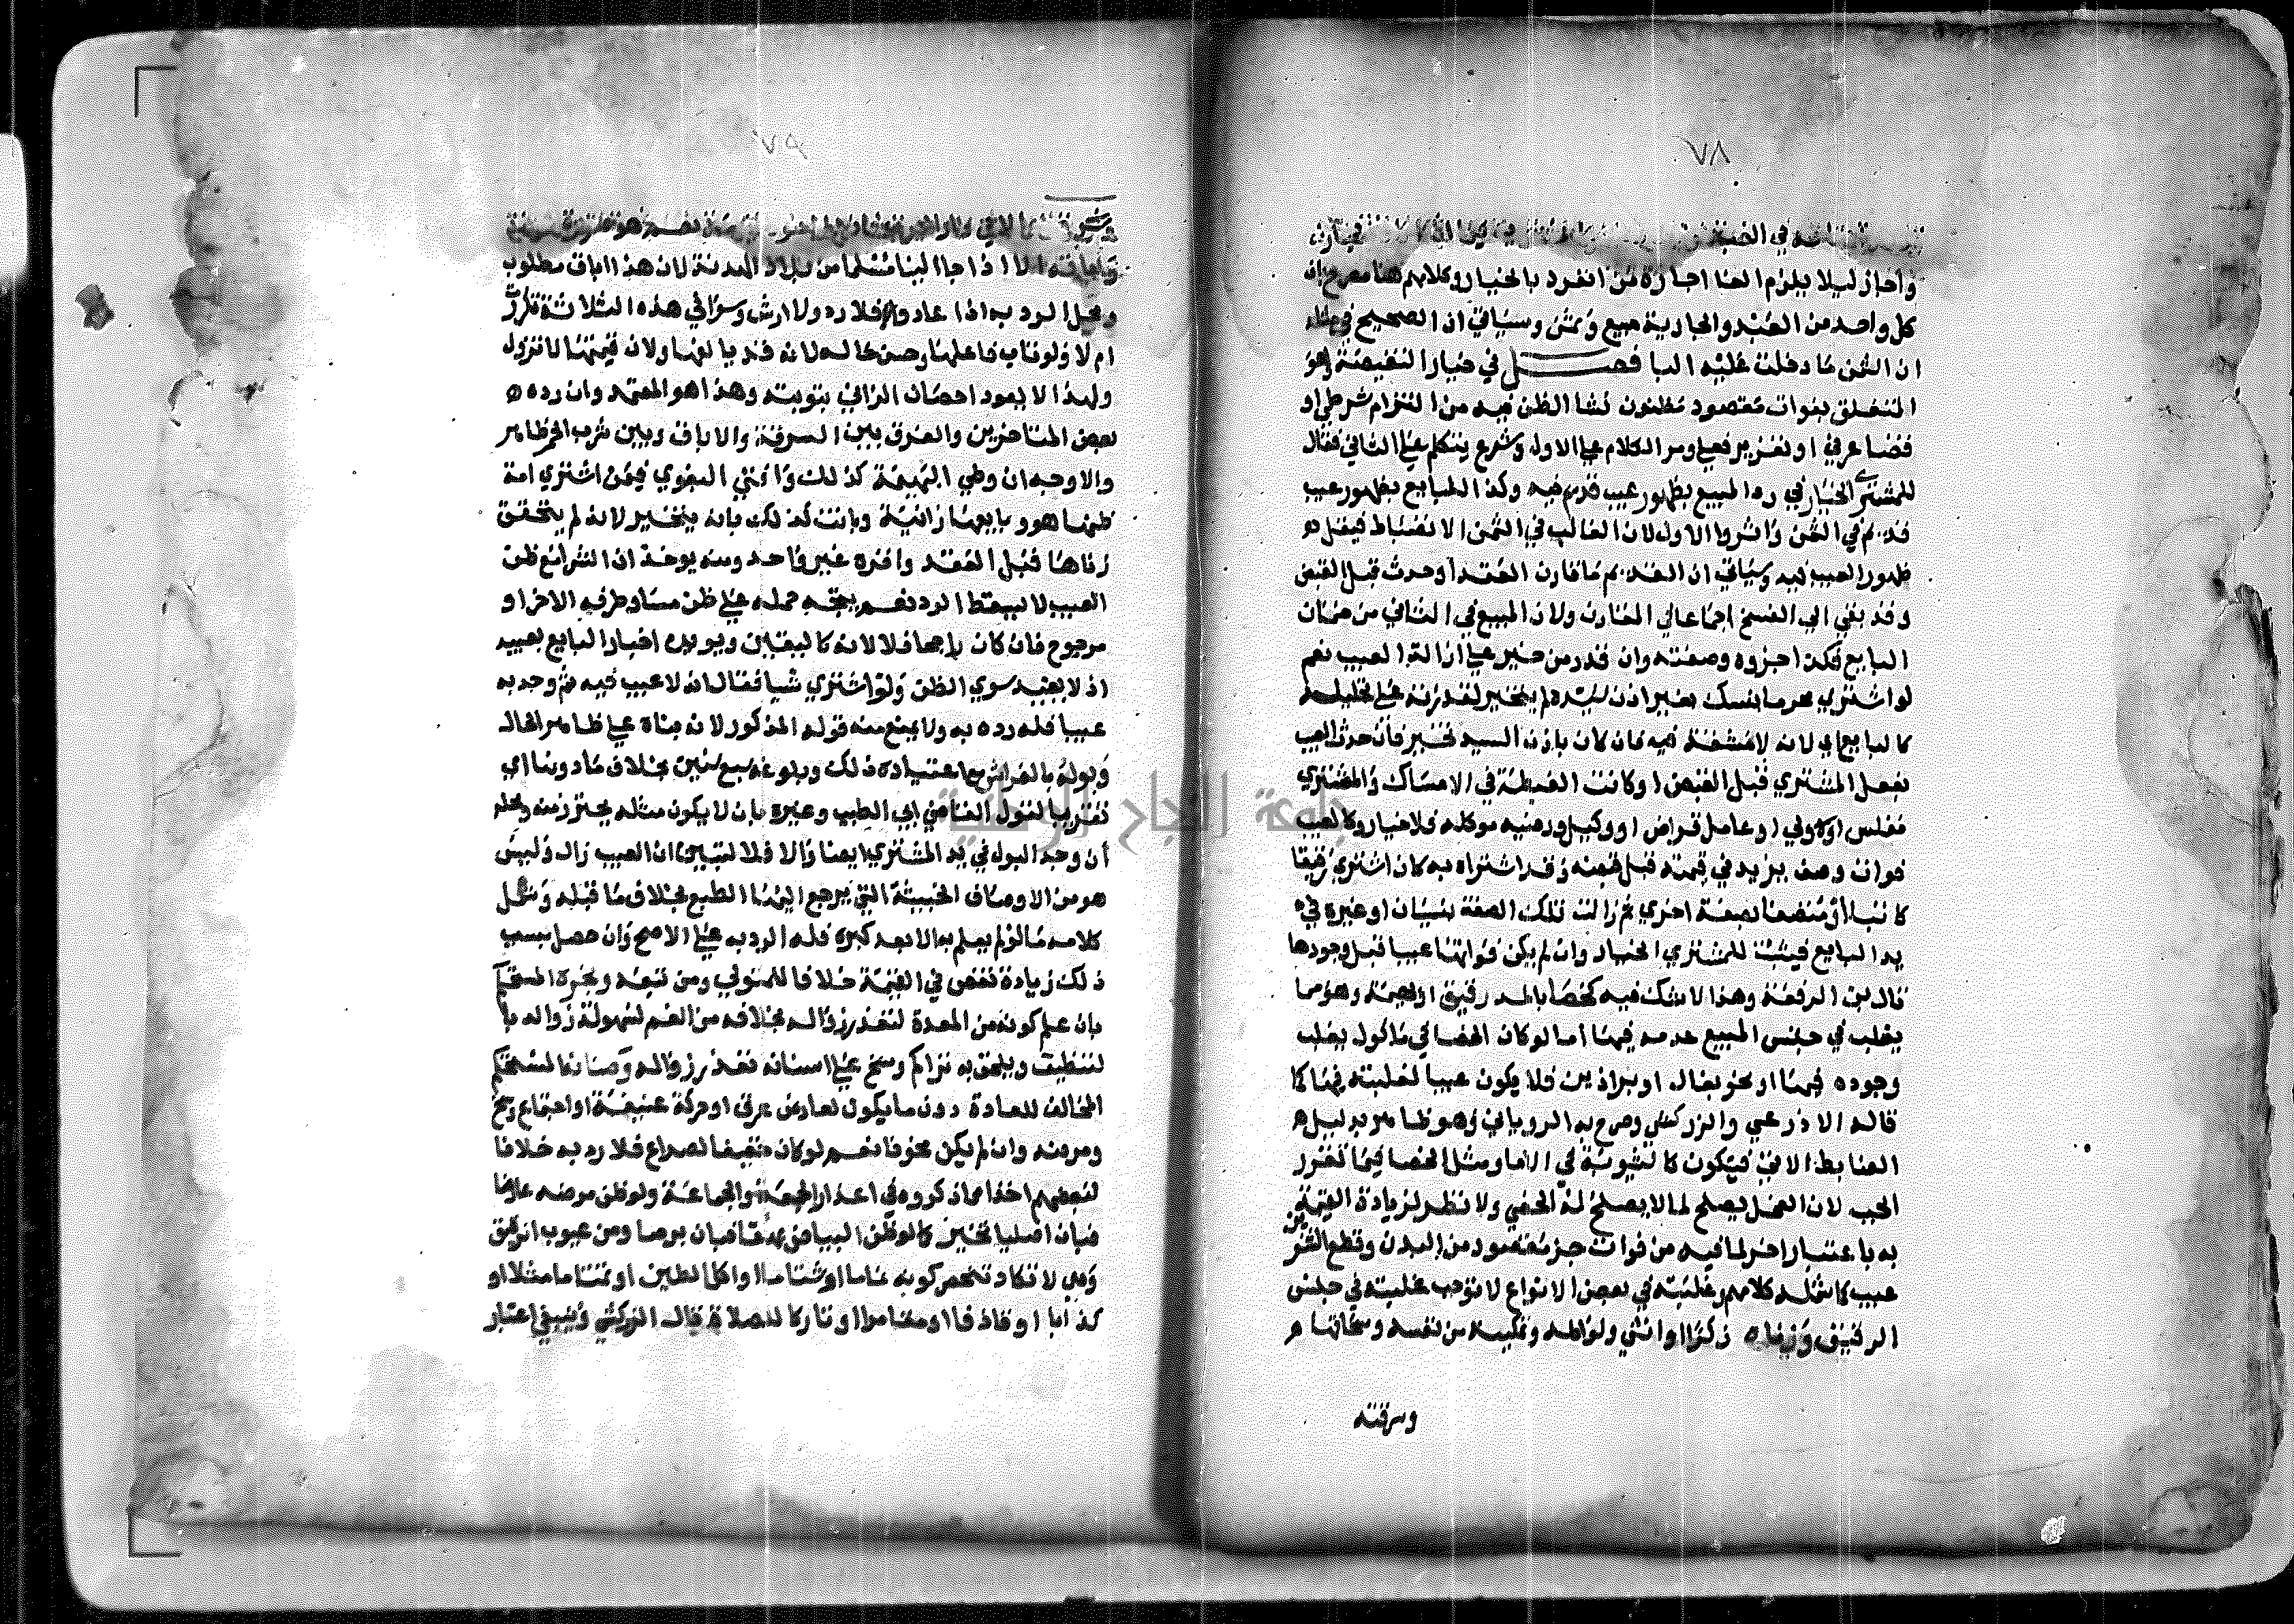 ٧٨
في
واجاز ليلا يلزم الغا اجازة من انفرد بالخيار وكلامهم هنا مصرح بان
كل واحد من العبد والجارية مبيع وثمن وسياتي ان الصحيح في
ان الثمن ما دخلت عليه البا فصل في خيار النقيصة وهو
المتعلق بفوات مقصود مظنون نشا الظن فيه من التزام شرطي او
قضا عرفي او تغرير فعلي ومر الكلام علي الاول وشرع يتكلم علي الثاني فقال
للمشتري الخيار في رد المبيع بظهور عيب قديم فيه وكذا للبايع بظهور عيب
قديم في الثمن واثروا الاول لان الغالب في الثمن الانضباط فيقل
ظهور العيب فيه وسياتي ان القديم ما قارن العقد او حدث قبل القبض
وقد بقي الي الفسخ اجماعا في المقارن ولان المبيع في الثاني من ضمان
البايع فكذا جزوه وصفته وان قدر من خير علي ازالة العيب نعم
لو اشتري محرما بنسك بغير اذن سيده لم يتخير لقدرته علي تحليله
كالبايع اي لانه لا مشقة فيه فان كان باذن السيد تخير فان حدث العيب
بفعل المشتري قبل القبض او كانت الغبطة في الامساك والمشتري
مفلس او ولي او عامل قراض او وكيل ورضيه موكله فلا خيار وكالعيب
فوات وصف يزيد في قيمته قبل قبضه وقد اشتراه به كان اشتري رقيقا
كاتبا او متصفا بصفة اخري ثم زالت تلك الصفة بنسيان او غيره في
يد البايع فيثبت للمشتري الخيار وان لم يكن فواتها عيبا قبل وجودها
قال بن الرفعة وهذا لا شك فيه كخصا بالمد رقيق او بهيمة وهو مما
يغلب في جنس المبيع عدمه فيها اما لو كان الخصا في ماكول يغلب
وجوده فيها او نحو بغال او براذين فلا يكون عيبا لغلبته فيها كما
قاله الاذرعي والزركشي وصرح به الروياني وهو ظاهر بدليل
الضابط الاتي فيكون كالثيوبة في الاما ومثل الخصا فيما تقرر
الجب لان الفحل يصلح لما لا يصلح له الخصي ولا نظر لزيادة القيمة
به باعتبار اخر لما فيه من فوات جزء مقصود من البدن وقطع الشفرين
عيب كما شمله كلامهم وغلبته في بعض الانواع لا توجب غلبته في جنس
الرقيق وزناه ذكرا او انثي ولو امة وتمكينه من نفسه وسحاقها
وسرقته
٧٩
الا اذا جا الينا مسلما من بلاد الهدنة لان هذا اباق مطلوب
ومحل الرد به اذا عاد والا فلا رد ولا ارش وسوا في هذه الثلاثة تكررت
ام لا ولو تاب فاعلها وحسن حاله لانه قد يالفها ولان تهمتها لا تزول
ولهذا لا يعود احصان الزاني بتوبته وهذا هو المعتمد وان رده
بعض المتاخرين والفرق بين السرقة والاباق وبين شرب الخمر ظاهر
والاوجه ان وطي البهيمة كذلك وافتي البغوي فيمن اشتري امة
ظنها هو وبايعها زانية وبانت كذلك بانه يتخير لانه لم يتحقق
زناها قبل العقد واقره غير واحد ومنه يوخذ ان الشرا مع ظن
العيب لا يسقط الرد نعم يتجه حمله علي ظن مساو طرفه الاخر او
مرجوح فان كان راجحا فلا لانه كاليقين ويويده اخبار البايع بعيبه
اذ لا يفيد سوي الظن ولو اشتري شيا فقال انه لا عيب فيه ثم وجد به
عيبا فله رده به ولا يمنع منه قوله المذكور لانه بناه علي ظاهر الحال
وبوله بالفراش مع اعتياده ذلك وبلوغه سبع سنين بخلاف ما دونها اي
تقريبا لقول القاضي ابي الطيب وغيره بان لا يكون مثله يحترز منه ومحله
ان وجد البول في يد المشتري ايضا والا فلا لتبين ان العيب زال وليس
هو من الاوصاف الخبيثة التي يرجع اليها الطبع بخلاف ما قبله وشمل
كلامه ما لو لم يعلم به الا بعد كبره فله الرد به علي الاصح وان حصل بسبب
ذلك زيادة نقص في القيمة خلافا للمتولي ومن تبعه وبخره المستحكم
بان علم كونه من المعدة لتعذر زواله بخلافه من الفم لسهولة زواله با
لتنظيف ويلحق به تراكم وسخ علي اسنانه تعذر زواله وصنانه المستحكم
المخالف للعادة دون ما يكون لعارض عرق او حركة عنيفة او اجتماع وسخ
ومرضه وان لم يكن مخوفا نعم لو كان خفيفا لصداع فلا رد به خلافا
لبعضهم اخذا مما ذكروه في اعذار الجمعة والجماعة ولو ظن مرضه عارضا
فبان اصليا تخير كما لو ظن البياض بهقا فبان برصا ومن عيوب الرقيق
وهي لا تكاد تنحصر كونه نماما او شتاما او اكل الطين او تمتاما مثلا او
كذابا او قاذفا او مقامرا او تاركا للصلاة قال الزركشي وينبغي اعتبار
جامعة النجاح الوطنية